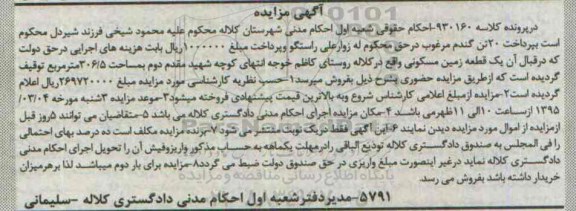 آگهی مزایده
درپرونده کلاسه ۹۳۰۱۶۰-احکام حقوقی شعبه اول احکام مدنی شهرستان کلاله محکوم علیه محمود شیخی فرزند شیردل محکوم
است بپرداخت ۲۰تن گندم مرغوب درحق محکوم له زوارعلی راستگو وپرداخت مبلغ ۱۰۰۰۰۰۰ریال بابت هزینه های اجرایی درحق دولت
که درقبال آن یک قطعه زمین مسکونی واقع درکلاله روستای کاظم خوجه انتهای کوچه شهید مقدم دوم بمساحت ۳۰۶/۵مترمربع توقیف
گردیده است که ازطریق مزایده حضوری بشرح ذیل بفروش میرسد۱-حسب نظریه کارشناسی مورد مزایده مبلغ ۲۶۹۷۲۰۰۰۰ریال اعلام
گردیده است۲-مزایده ازمبلغ اعلامی کارشناس شروع وبه بالاترین قیمت پیشنهادی فروخته میشود۳-موعد مزایده ۳شنبه مورخه ۰۳/۰۴/
۱۳۹۵ ازساعت ۱۰الی ۱۱ظهرمی باشد ۴-مکان مزایده اجرای احکام مدنی دادگستری کلاله می باشد ۵-متقاضیان می توانند ۵روز قبل
ازمزایده از اموال مورد مزایده دیدن نمایند ۶-این آگهی فقط دریک نوبت منتشر می شود ۷-برنده مزایده مکلف است ده درصد بهای احتمالی
را فی المجلس به صندوق دادگستری کلاله تودیع الباقی رادرمهلت یکماهه به حساب مذکور واریزوفیش آن را تحویل اجرای احکام مدنی
دادگستری کلاله نماید درغیر اینصورت مبلغ واریزی در حق صندوق دولت ضبط می گردد۸-مزایده برای بار دوم میباشد لذا برهرمیزان
خریدار داشته باشد بفروش می رسد.
۵۷۹۱-مدیردفترشعبه اول احکام مدنی دادگستری کلاله -سلیمانی